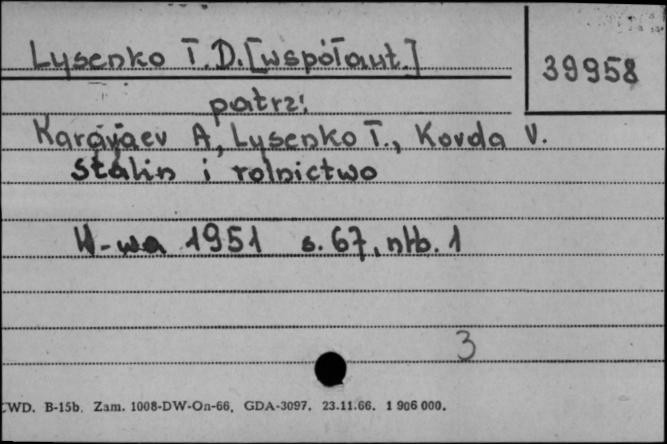 Lysenko T. D. [współaut.]
39958
patrz:
Karavaev A, Lysenko T., Kovda V.
Stalin i rolnictwo
W-wa 1951 s. 67, nlb. 1
3
CWD. B-15b. Zam. 1008-DW-On-66. GDA-3097. 23.11.66. 1 906 000.